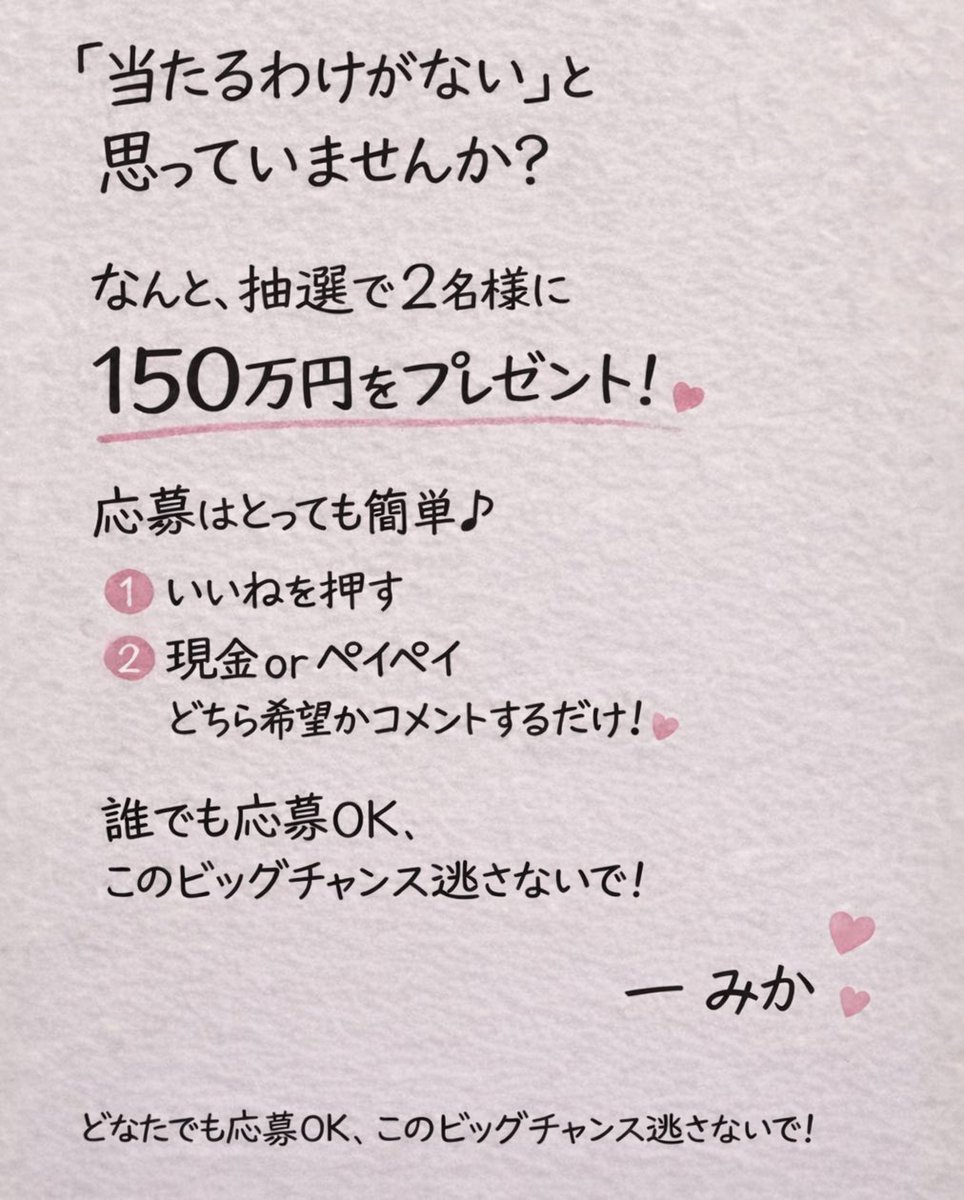 「当たるわけがない」と
思っていませんか？
なんと、抽選で2名様に
150万円をプレゼント！
応募はとっても簡単♪
1 いいねを押す
2 現金orペイペイ
どちら希望かコメントするだけ！
誰でも応募OK、
このビッグチャンス逃さないで！
— みか
どなたでも応募OK、このビッグチャンス逃さないで！